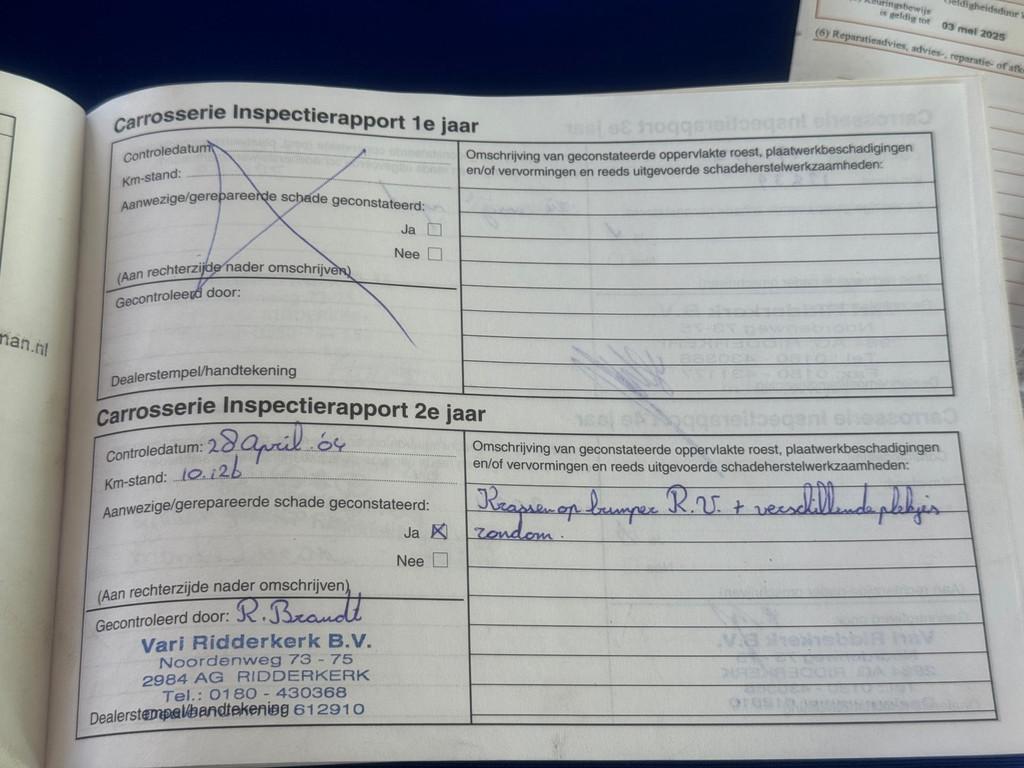 (6) Reparatieadvies, advies-, reparatie- of
Keuringsbewijs
is geldig tot 03 mei 2025
nan.nl
Carrosserie Inspectierapport 1e jaar
Controledatum:
Km-stand:
Aanwezige/gerepareerde schade geconstateerd:
Ja
Nee
(Aan rechterzijde nader omschrijven)
Gecontroleerd door:
Dealerstempel/handtekening
Omschrijving van geconstateerde oppervlakte roest, plaatwerkbeschadigingen
en/of vervormingen en reeds uitgevoerde schadeherstelwerkzaamheden:
Carrosserie Inspectierapport 2e jaar
Controledatum: 28 April '04
Km-stand: 10.126
Aanwezige/gerepareerde schade geconstateerd:
Ja
Nee
(Aan rechterzijde nader omschrijven)
Gecontroleerd door: R. Brandt
Vari Ridderkerk B.V.
Noordenweg 73 - 75
2984 AG RIDDERKERK
Tel.: 0180 - 430368
612910
Dealerstempel/handtekening
Omschrijving van geconstateerde oppervlakte roest, plaatwerkbeschadigingen
en/of vervormingen en reeds uitgevoerde schadeherstelwerkzaamheden:
Krassen op bumper R.V. + verschillende plekjes
rondom.